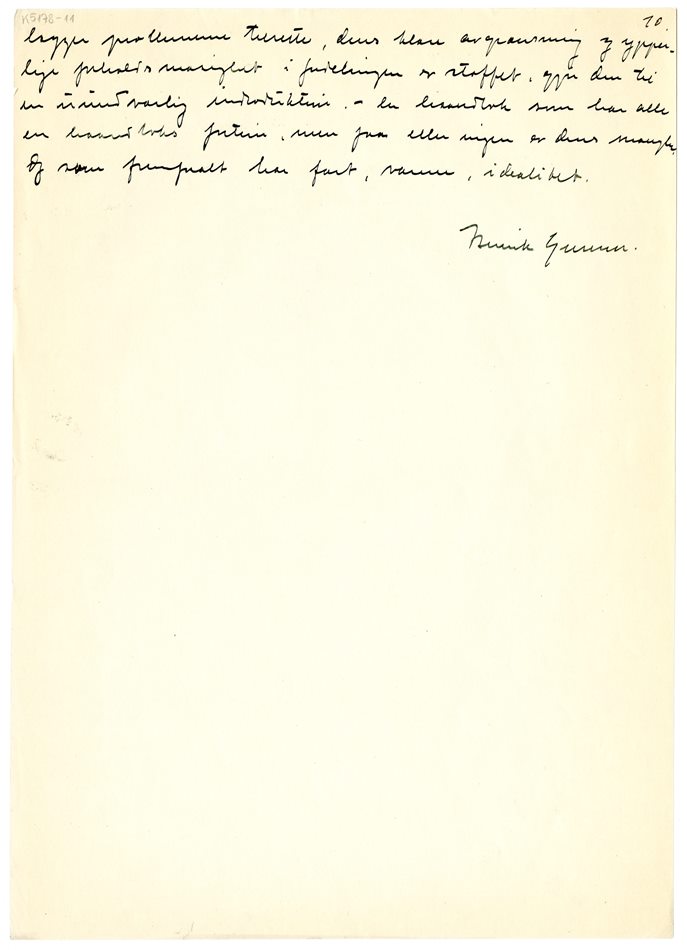 K5178-11
10
lægger problemene tilrette, dens klare avgrænsning og ypper-
lige forholdsmæssighet i fordelingen av stoffet, gjør den til
en uundværlig introduktion. - En haandbok som har alle
en haandboks fortrin, men faa eller ingen av dens mangler.
Og som fremforalt har fart, varme, idealitet.
Henrik